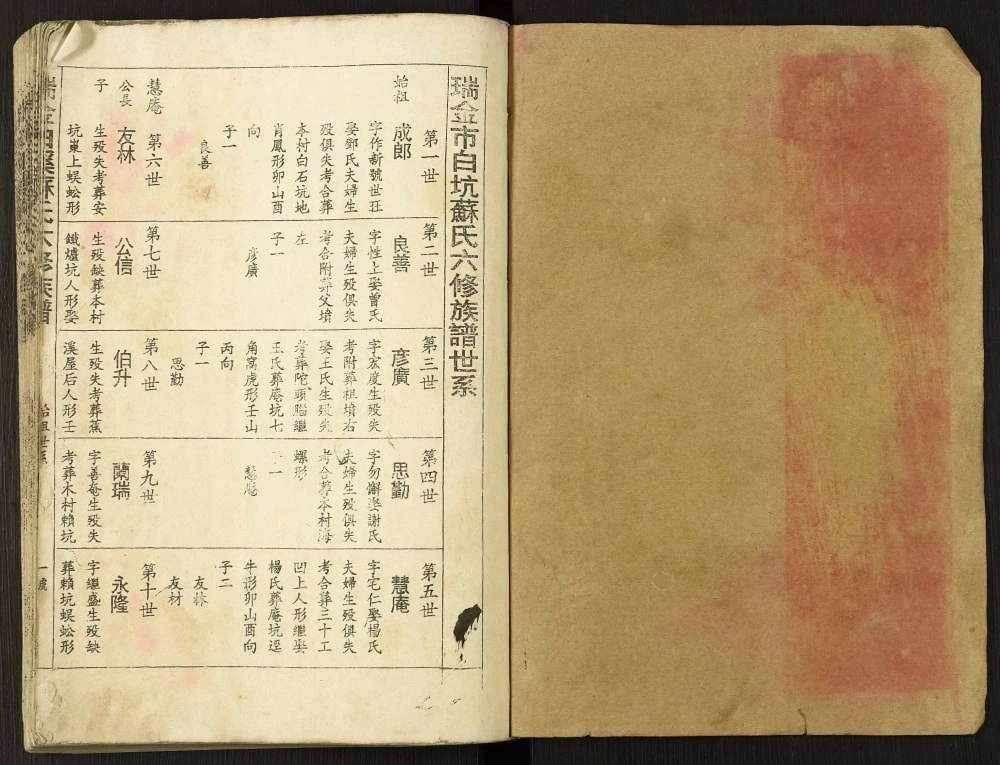 瑞金市白坑蘇氏六修族譜世系
第一世
始祖 成郎
字作新號世荘
娶鄧氏夫婦生
歿俱失考合葬
本村白石坑地
肖鳳形卯山酉
向
子一
良善
第二世
良善
字性上娶曾氏
夫婦生歿俱失
考合附葬父墳
左
子一
彦廣
第三世
彦廣
字宏度生歿失
考附葬祖墳右
娶王氏生歿失
考葬陀頭腦繼
王氏葬庵坑七
角窩虎形壬山
丙向
子一
思勤
第四世
思勤
字勿懈娶謝氏
夫婦生歿俱失
考合葬本村海
螺形
子一
慧庵
第五世
慧庵
字宅仁娶楊氏
夫婦生歿俱失
考合葬三十工
凹上人形繼娶
楊氏葬庵坑逕
牛形卯山酉向
子二
友林
友材
慧庵
公長
子
第六世
友林
生歿失考葬安
坑崬上蜈蚣形
第七世
公信
生歿缺葬本村
鐵爐坑人形娶
第八世
伯升
生歿失考葬蕉
溪屋后人形壬
第九世
蘭瑞
字善奄生歿失
考葬木村賴坑
第十世
永隆
字繼盛生歿缺
葬賴坑蜈蚣形
始祖世系
一號